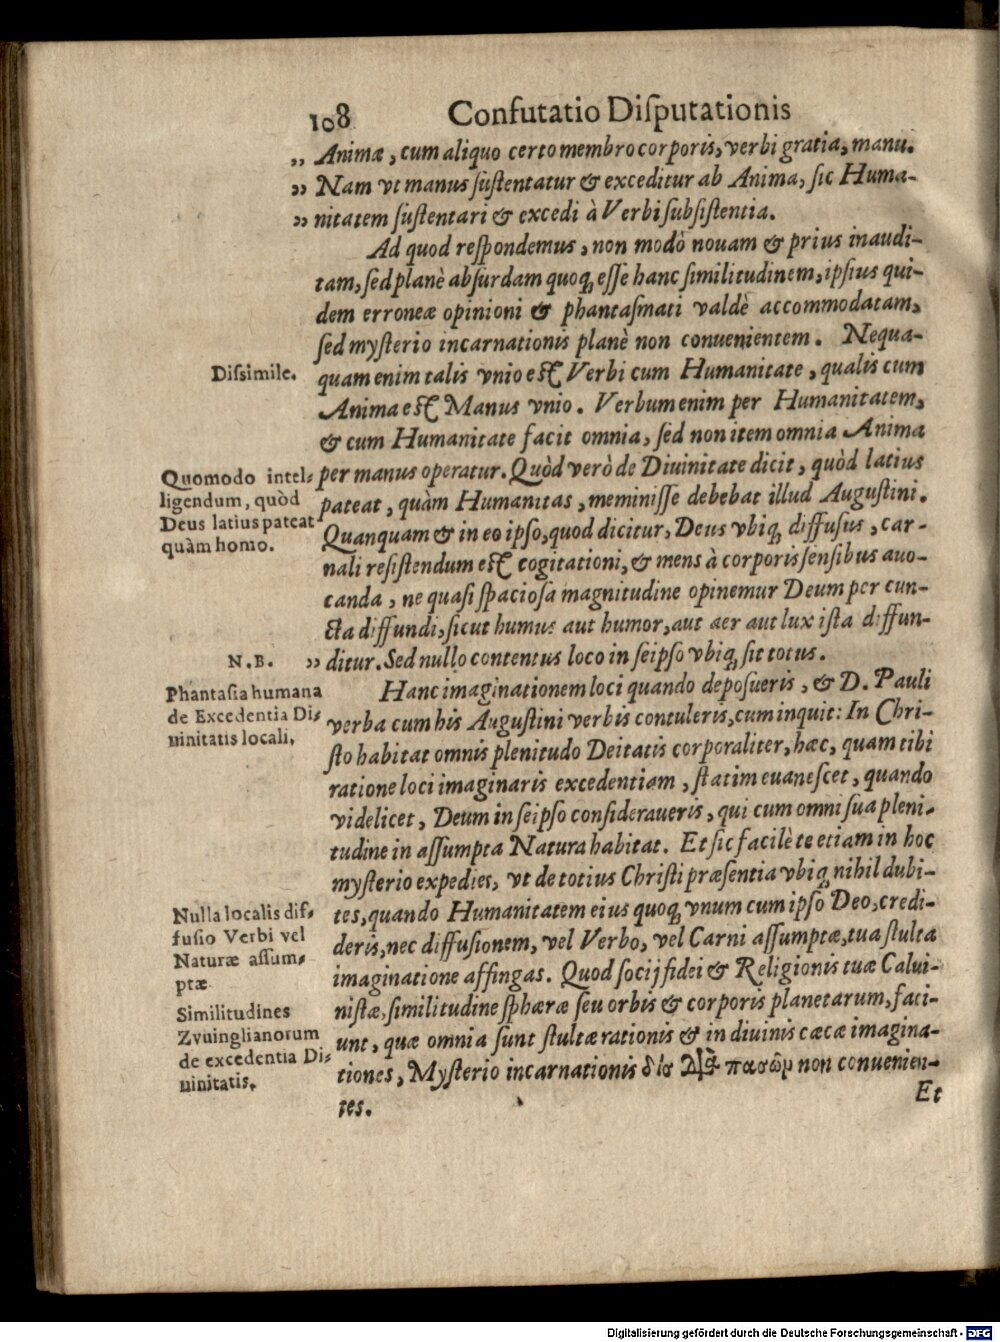 108 Confutatio Diſputationis
„ Animæ, cum aliquo certo membro corporis, verbi gratia, manu.
„ Nam vt manus ſuſtentatur & exceditur ab Anima, ſic Huma-
„ nitatem ſuſtentari & excedi à Verbi ſubſiſtentia.
Ad quod reſpondemus, non modò nouam & prius inaudi-
tam, ſed planè abſurdam quoq, eſſe hanc ſimilitudinem, ipſius qui-
dem erroneæ opinioni & phantaſmati valdè accommodatam,
ſed myſterio incarnationis planè non conuenientem. Nequa-
Diſsimile.
quam enim talis vnio eſt Verbi cum Humanitate, qualis cum
Anima eſt Manus vnio. Verbum enim per Humanitatem,
& cum Humanitate facit omnia, ſed non item omnia Anima
Quomodo intel-
ligendum, quòd
Deus latius pateat
quàm homo.
per manus operatur. Quòd verò de Diuinitate dicit, quòd latius
pateat, quàm Humanitas, meminiſſe debebat illud Auguſtini.
Quanquam & in eo ipſo, quod dicitur, Deus vbiq, diffuſus, car-
nali reſiſtendum eſt cogitationi, & mens à corporis ſenſibus auo-
canda, ne quaſi ſpacioſa magnitudine opinemur Deum per cun-
cta diffundi, ſicut humus aut humor, aut aer aut lux iſta diffun-
N.B.
„ ditur. Sed nullo contentus loco in ſeipſo vbiq, ſit totus.
Phantaſia humana
de Excedentia Di-
uinitatis locali.
Hanc imaginationem loci quando depoſueris, & D. Pauli
verba cum his Auguſtini verbis contuleris, cum inquit: In Chri-
ſto habitat omnis plenitudo Deitatis corporaliter, hæc, quam tibi
ratione loci imaginaris excedentiam, ſtatim euaneſcet, quando
videlicet, Deum in ſeipſo conſideraueris, qui cum omni ſua pleni-
tudine in aſſumpta Natura habitat. Et ſic facilè te etiam in hoc
myſterio expedies, vt de totius Chriſti præſentia vbiq, nihil dubi-
Nulla localis dif-
fuſio Verbi vel
Naturæ aſſum-
ptæ
tes, quando Humanitatem eius quoq, vnum cum ipſo Deo, credi-
deris, nec diffuſionem, vel Verbo, vel Carni aſſumptæ, tua ſtulta
imaginatione affingas. Quod ſocij fidei & Religionis tuæ Calui-
Similitudines
Zvuinglianorum
de excedentia Di-
uinitatis.
niſtæ, ſimilitudine ſphæræ ſeu orbis & corporis planetarum, faci-
unt, quæ omnia ſunt ſtultæ rationis & in diuinis cæcæ imagina-
tiones, Myſterio incarnationis πασῶν non conuenien-
tes.
Et
Digitalisierung gefördert durch die Deutsche Forschungsgemeinschaft - DFG